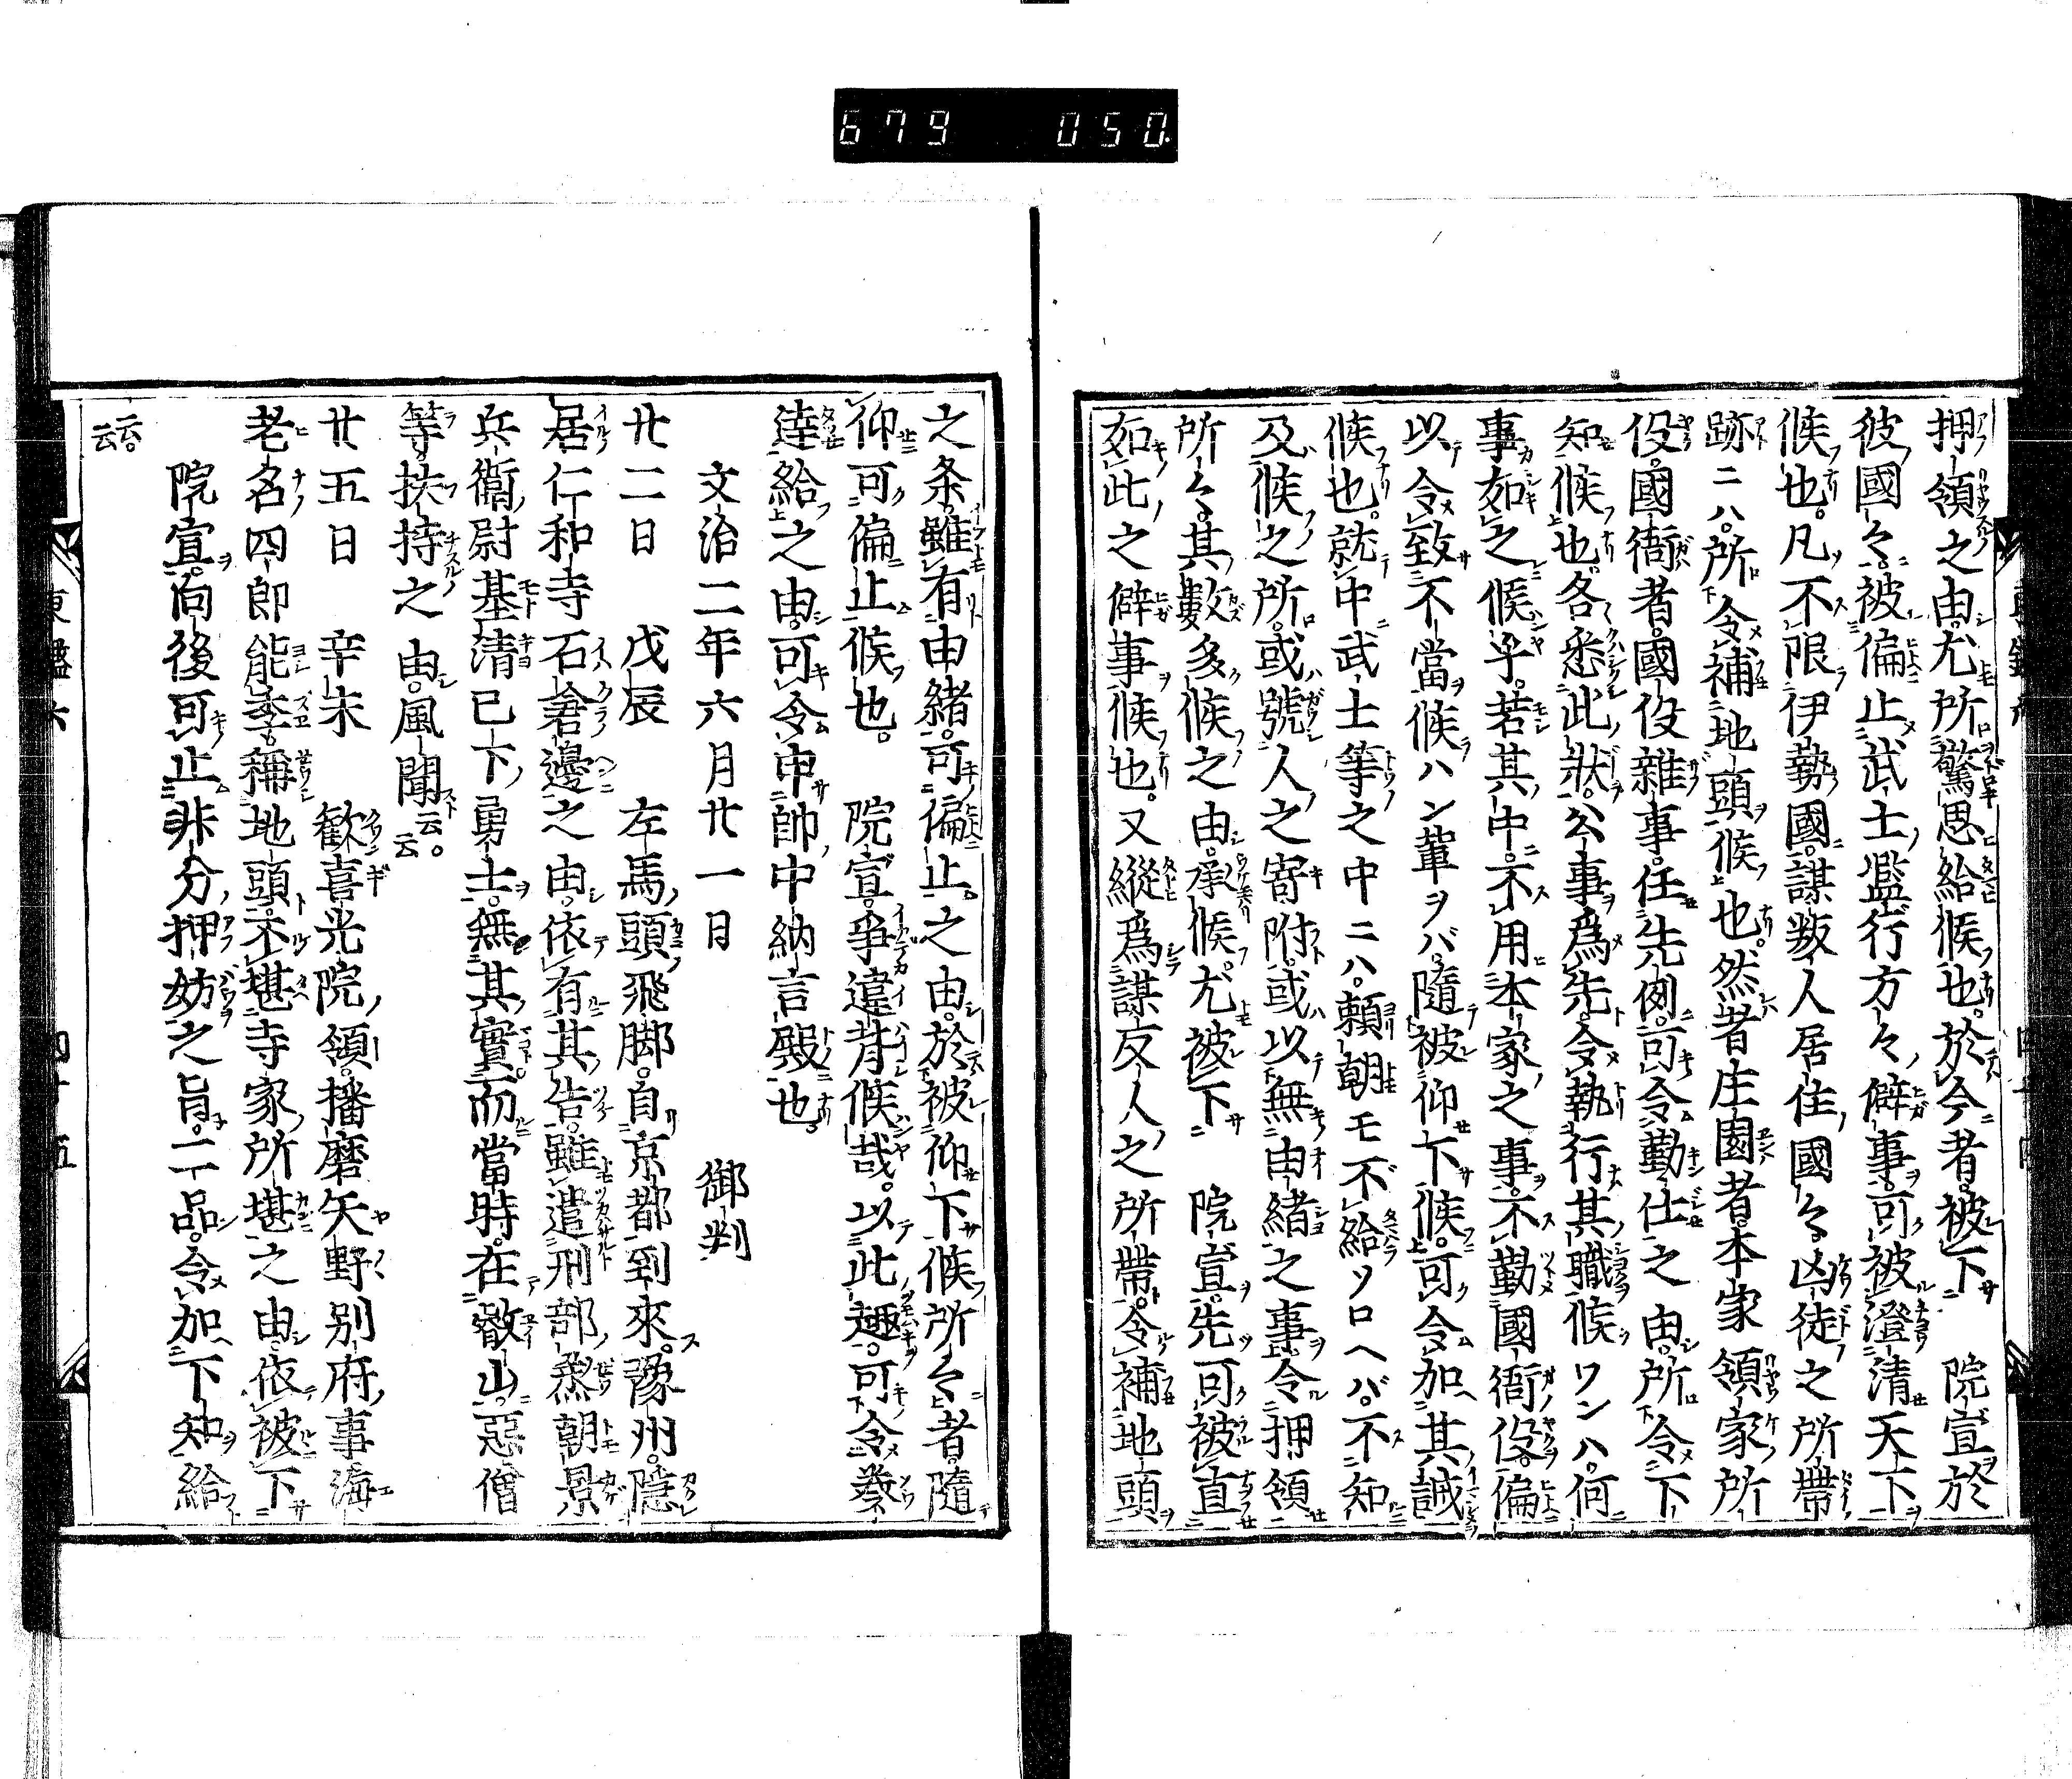 679 050
押領之由。尤所驚思給候也。於今者。被下 院宣於
彼國々。被偏止武士濫行方々僻事。可被澄清天下
候也。凡不限伊勢國。謀叛人居住國々。凶徒之所帶
跡ニハ。所令補地頭候也。然者庄園者。本家領家所
役。國衙者。國役雜事。任先例。可令勤仕之由。所令下
知候也。各悉此狀。公事爲先。令執行其職候ワンハ。何
事如之候乎。若其中。不用本家之事。不勤國衙役。偏
以令致不當候ハン輩ヲバ。隨被仰下候。可令加其誡
候也。就中武士等之中ニハ。賴朝モ不給ソロヘバ。不知
及候之所。或號人之寄附。或以無由緒之事。令押領
所々。其數多候之由。承候。尤被下 院宣。先可被直
如此之僻事候也。又縱爲謀反人之所帶。令補地頭
之条。雖有由緒。可偏止。之由。於被仰下候所々者。隨
仰可偏止候也。 院宣。爭違背候哉。以此趣。可令奏
達給之由。可令申帥中納言殿也。
文治二年六月廿一日 御判
廿二日 戊辰 左馬頭飛脚。自京都到來。豫州。隱
居仁和寺石藏邊之由。依有其告。雖遣刑部烝朝景
兵衞尉基清已下勇士。無其實。而當時。在叡山惡僧
等扶持之由。風聞云云。
廿五日 辛未 歡喜光院領。播磨矢野別府事海
老名四郎能季。稱地頭。不堪寺家所堪之由。依被下
院宣。向後可止非分押妨之旨。二品。令加下知給
云云。
東鑑六
四十五